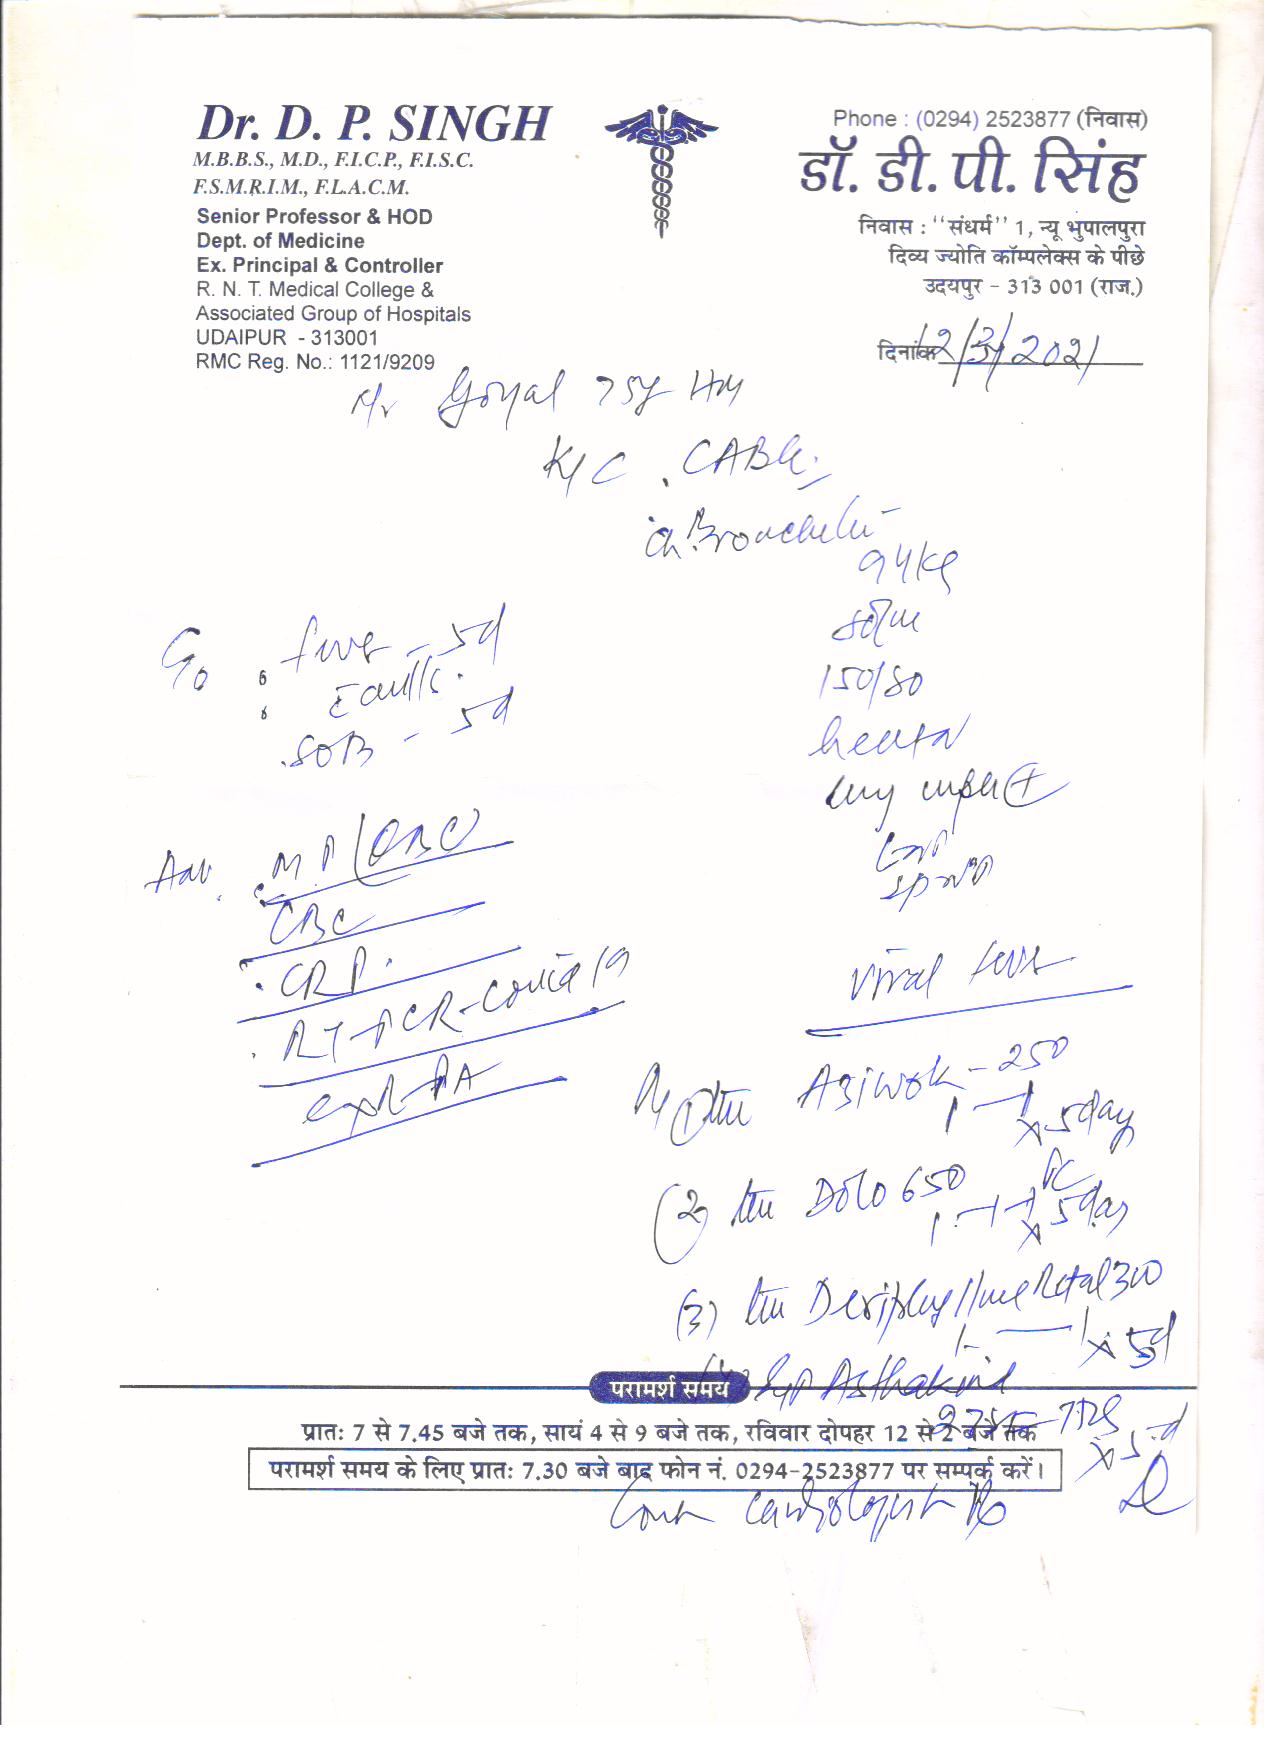 Dr. D. P. SINGH
M.B.B.S., M.D., F.I.C.P., F.I.S.C.
F.S.M.R.I.M., F.L.A.C.M.
Senior Professor & HOD
Dept. of Medicine
Ex. Principal & Controller
R. N. T. Medical College &
Associated Group of Hospitals
UDAIPUR - 313001
RMC Reg. No.: 1121/9209
Phone : (0294) 2523877 (निवास)
डॉ. डी. पी. सिंह
निवास : ‘‘संधर्म’’ 1, न्यू भुपालपुरा
दिव्य ज्योति कॉम्पलेक्स के पीछे
उदयपुर - 313 001 (राज.)
दिनांक 12/3/2021
Mr Goyal 75y HM
K/C . CABG.
Ch. Bronchitis
94 kg
80/m
150/80
C/o . fever - 5d
. SOB - 5d
Adv. . MP/QBC
CBC
. CRP.
. RT-PCR-Covid 19
Viral fever
(1) Aziwok - 250
1 — 1 x 5 day
(2) Dolo 650
1 - 1 - 1 x 5 day
(3) Deriphylline Retal 300
1 — 1 x 5d
Syp Asthakind
2TSF - TDS
x 5d
परामर्श समय
प्रातः 7 से 7.45 बजे तक, सायं 4 से 9 बजे तक, रविवार दोपहर 12 से 2 बजे तक
परामर्श समय के लिए प्रातः 7.30 बजे बाद फोन नं. 0294-2523877 पर सम्पर्क करें।
Cont Cardiologist